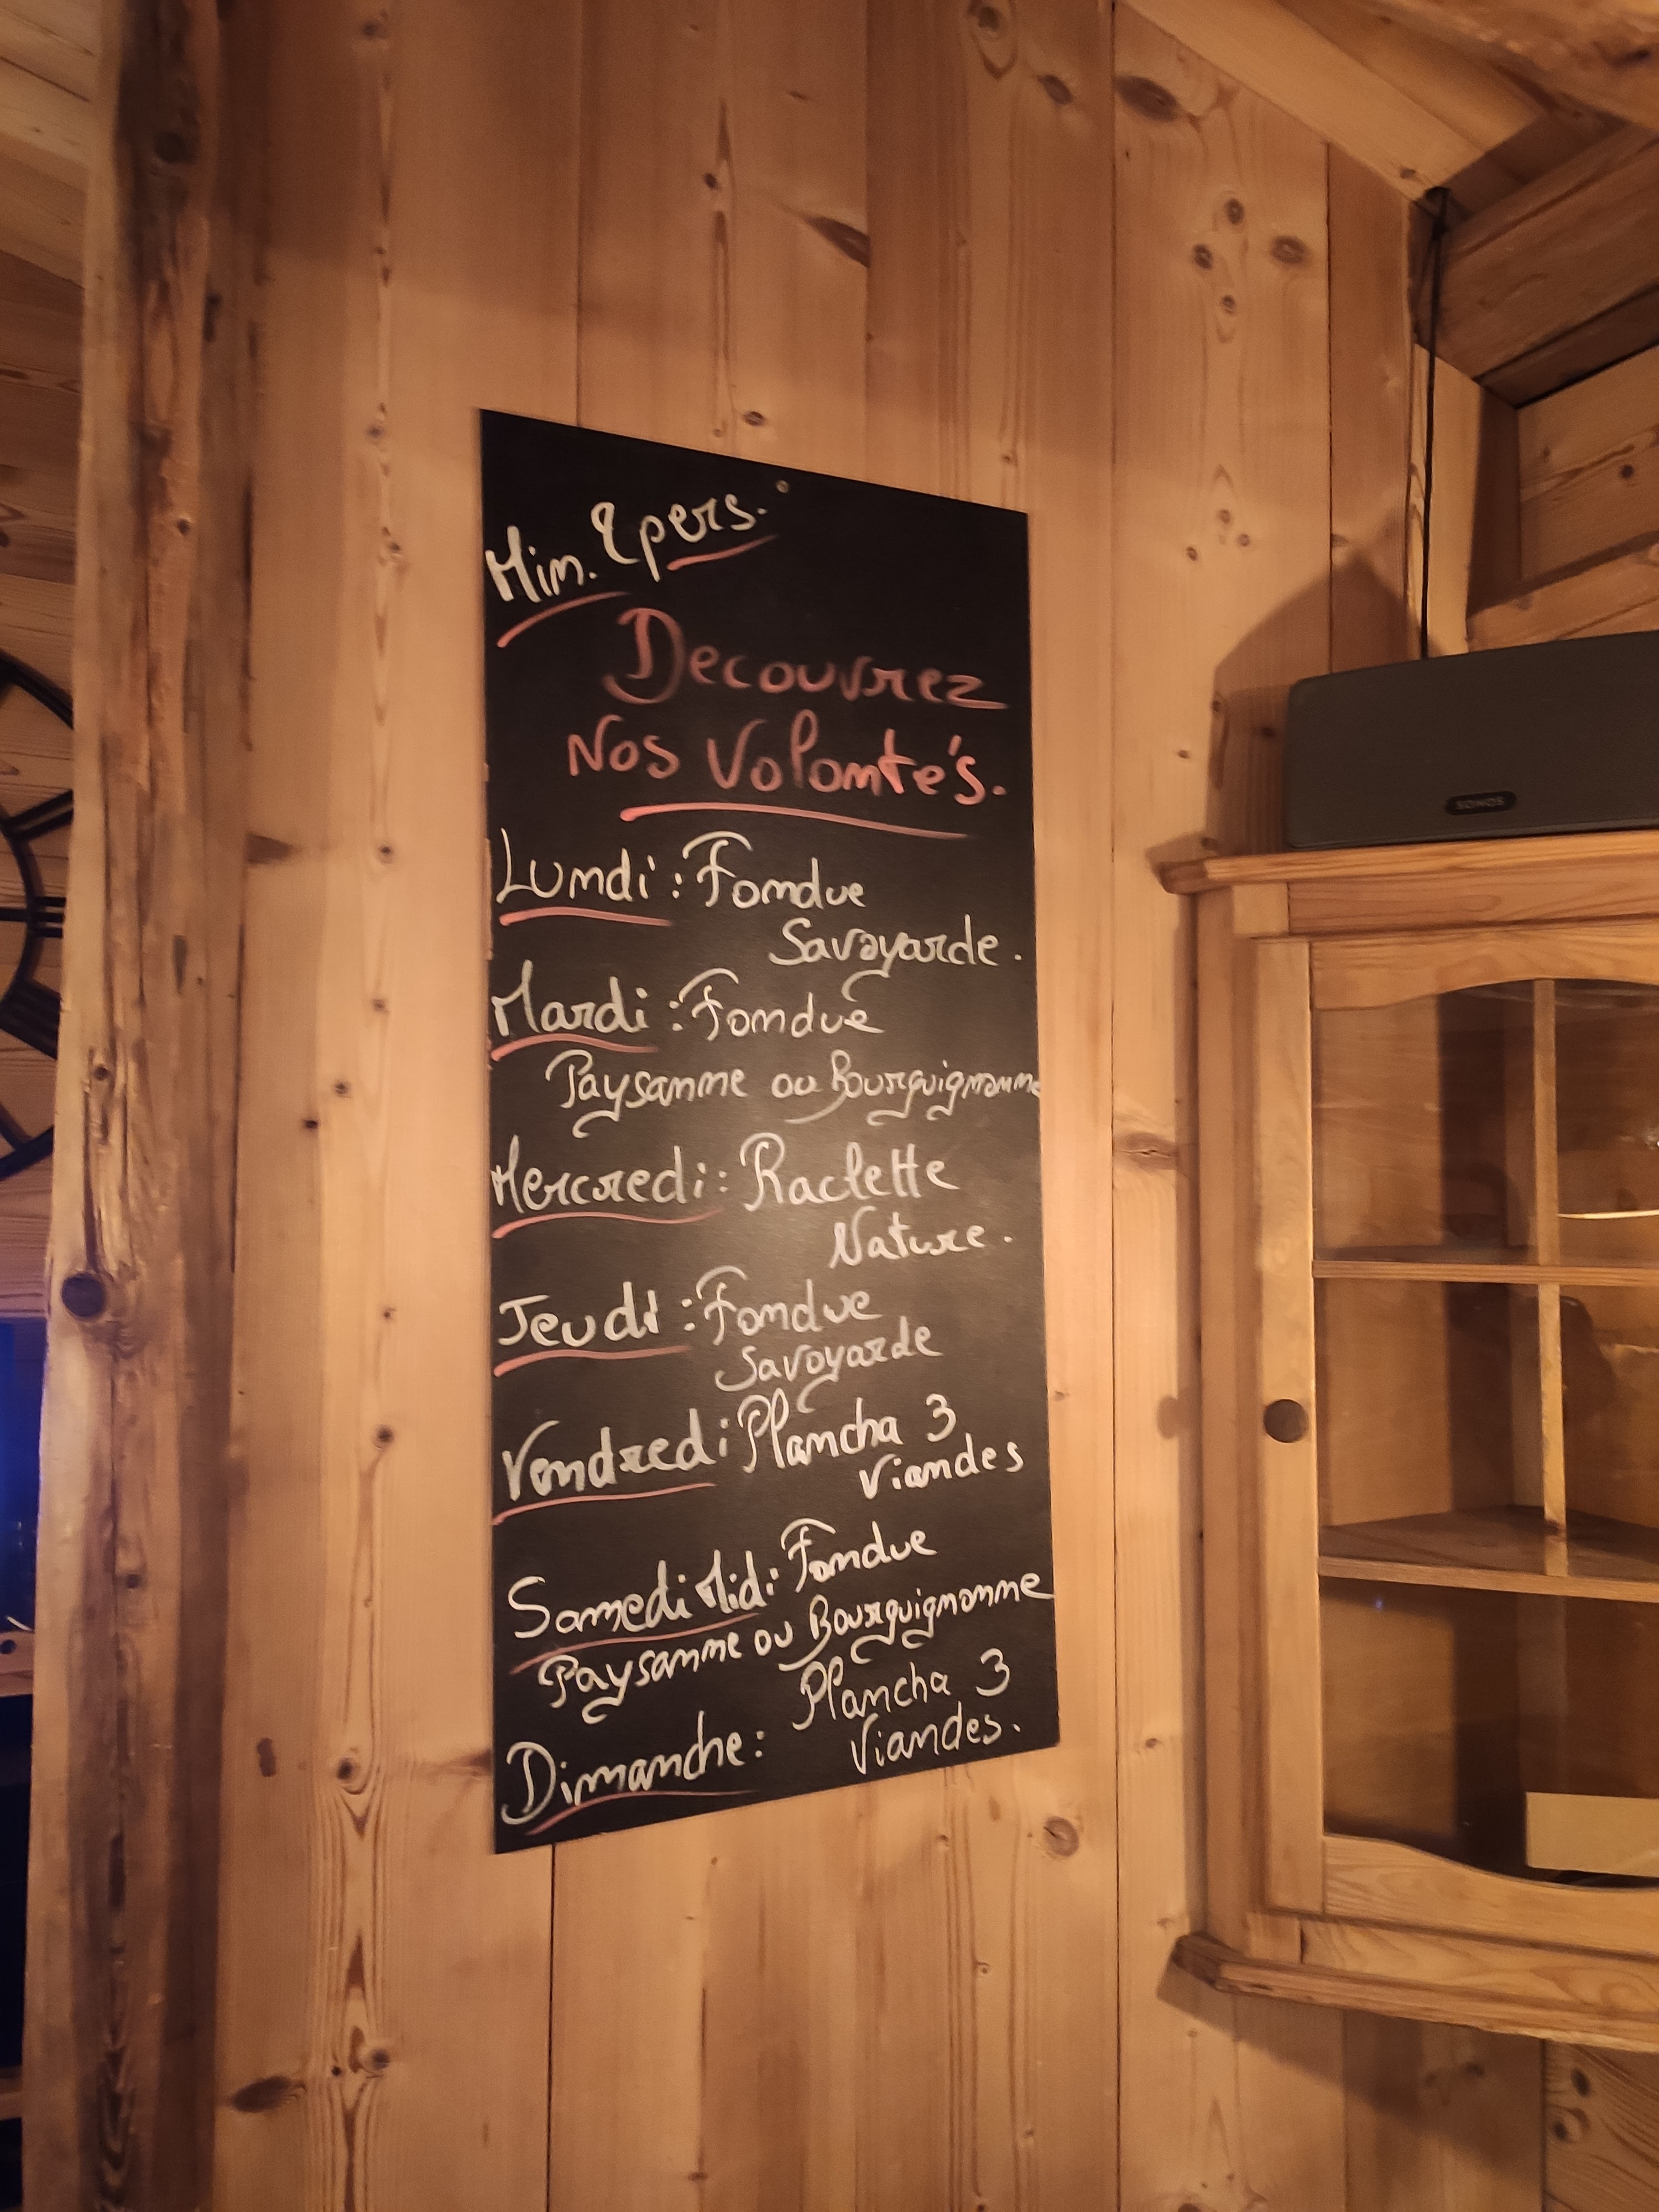 Min. 2 pers.
Decouvrez
Nos Volontés.
Lundi : Fondue
Savoyarde.
Mardi : Fondue
Paysanne ou Bourguignonne
Mercredi : Raclette
Nature.
Jeudi : Fondue
Savoyarde
Vendredi : Plancha 3
Viandes
Samedi Midi : Fondue
Paysanne ou Bourguignonne
Dimanche : Plancha 3
Viandes.
SONOS